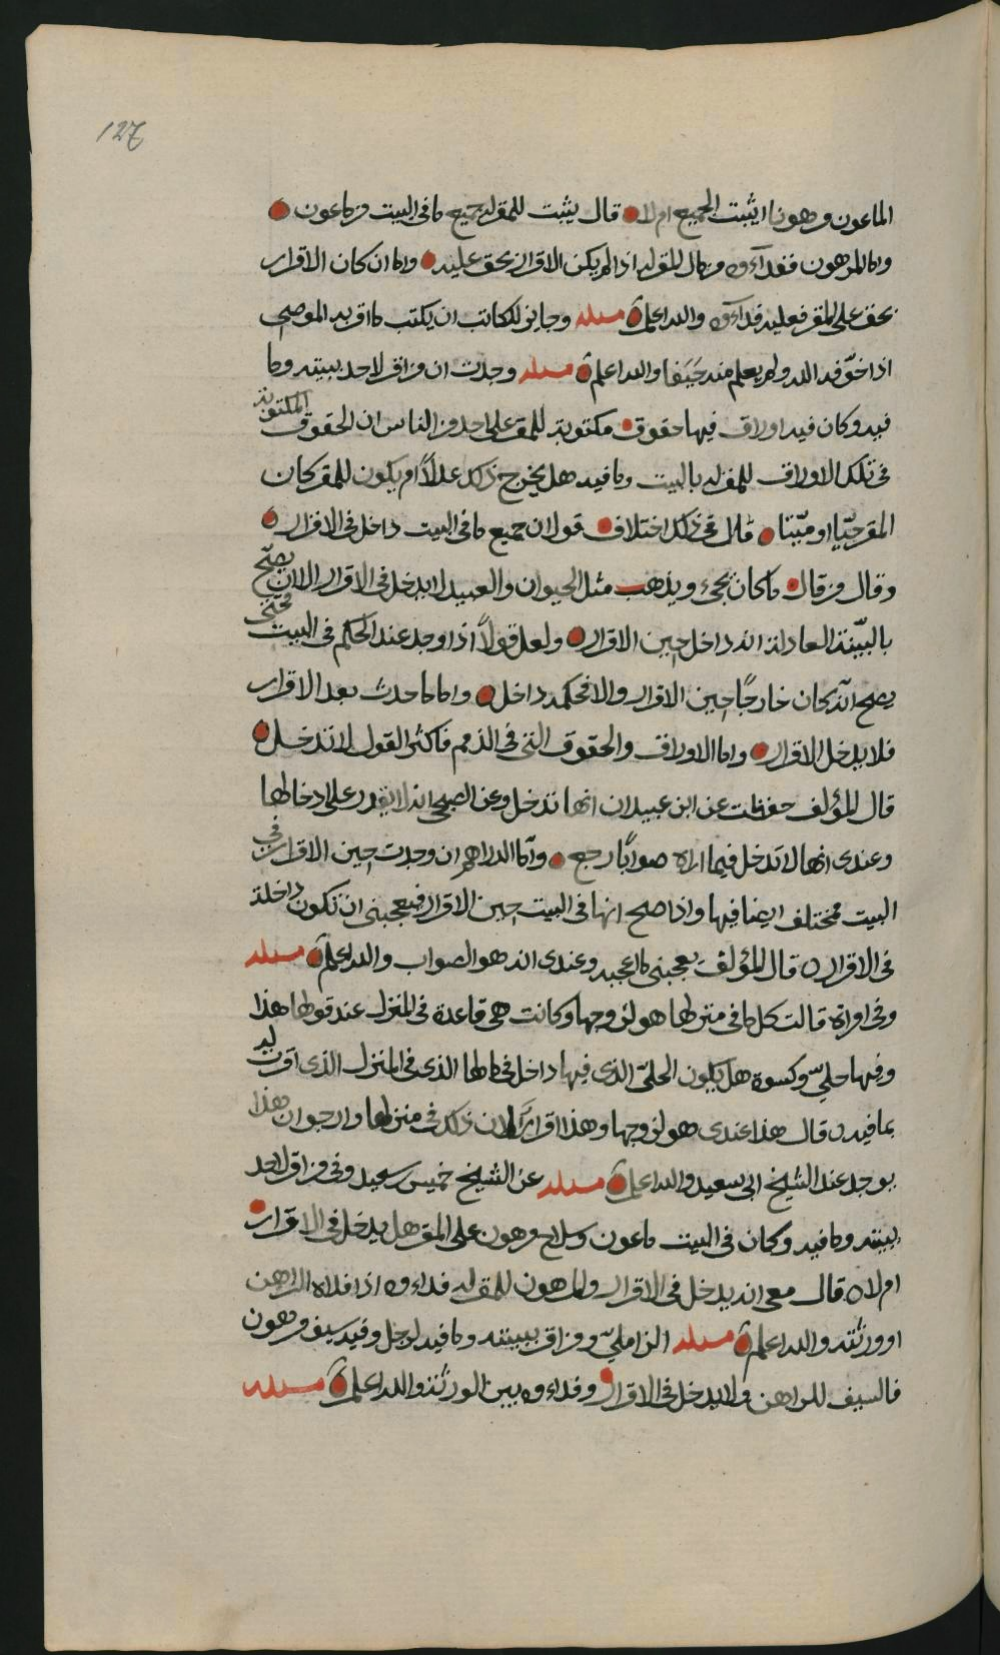 127
الماعون مرهونا ايثبت الجميع ام لا قال يثبت للمقر له جميع ما في البيت من ماعون
واما المرهون ففداؤه من مال المقر له اذا لم يكن الاقرار بحق عليه واما ان كان الاقرار
بحق على المقر فعليه فداؤه والله اعلم مسئلة وجايز للكاتب ان يكتب ما اقر به الموصي
اذا خوّفه الله ولم يعلم منه جَنَفا والله اعلم مسئلة وجدت ان من اقر لاحد ببيته وما
فيه وكان فيه اوراق فيها حقوق مكتوبة للمقر على احد من الناس ان الحقوق المكتوبة
في تلك الاوراق للمقر له بالبيت وما فيه هل يخرج ذلك عدلًا ام يكون للمقر كان
المقر حيّا او ميّتا قال في ذلك اختلاف قول ان جميع ما في البيت داخل في الاقرار
وقال من قال ما كان يجيء ويذهب مثل الحيوان والعبيد لا يدخل في الاقرار الا ان يصحّ
بالبيّنة العادلة انه داخل حين الاقرار ولعل قولًا اذا وجد عند الحكم في البيت فحتى
يصح انه كان خارجًا حين الاقرار والا فحكمه داخل واما ما حدث بعد الاقرار
فلا يدخل الاقرار واما الاوراق والحقوق التي في الذمم فاكثر القول لا تدخل
قال المؤلف حفظت عن ابن عبيدان انها تدخل وعن الصبحي انه لا يقدر على ادخالها
وعندي انها لا تدخل فيما اراه صوابًا رجع وامّا الدراهم ان وجدت حين الاقرار في
البيت فمختلف ايضا فيها واذا صح انها في البيت حين الاقرار فيعجبني ان تكون داخلة
في الاقرار قال المؤلف يعجبني ما اعجبه وعندي انه هو الصواب والله اعلم مسئلة
وفي امراة قالت كل ما في منزلها هو لزوجها وكانت هي قاعدة في المنزل عند قولها هذا
وفيها حليّ وكسوة هل يكون الحليّ الذي فيها داخل في مالها الذي في المنزل الذي اقرت له
بما فيه قال هذا عندي هو لزوجها وهذا اقرار لان ذلك في منزلها وارجو ان هذا
يوجد عند الشيخ ابي سعيد والله اعلم مسئلة عن الشيخ خميس بن سعيد وفي من اقر لاحد
ببيته وما فيه وكان في البيت ماعون وسلاح مرهون على المقر هل يدخل في الاقرار
ام لا قال معي انه يدخل في الاقرار والمرهون للمقر له فداءه اذا فداه الراهن
او ورثته والله اعلم مسئلة الزامليّ ومن اقر ببيته وما فيه لرجل وفيه سيف مرهون
فالسيف للراهن ولا يدخل في الاقرار وفداءه بين الورثة والله اعلم مسئلة